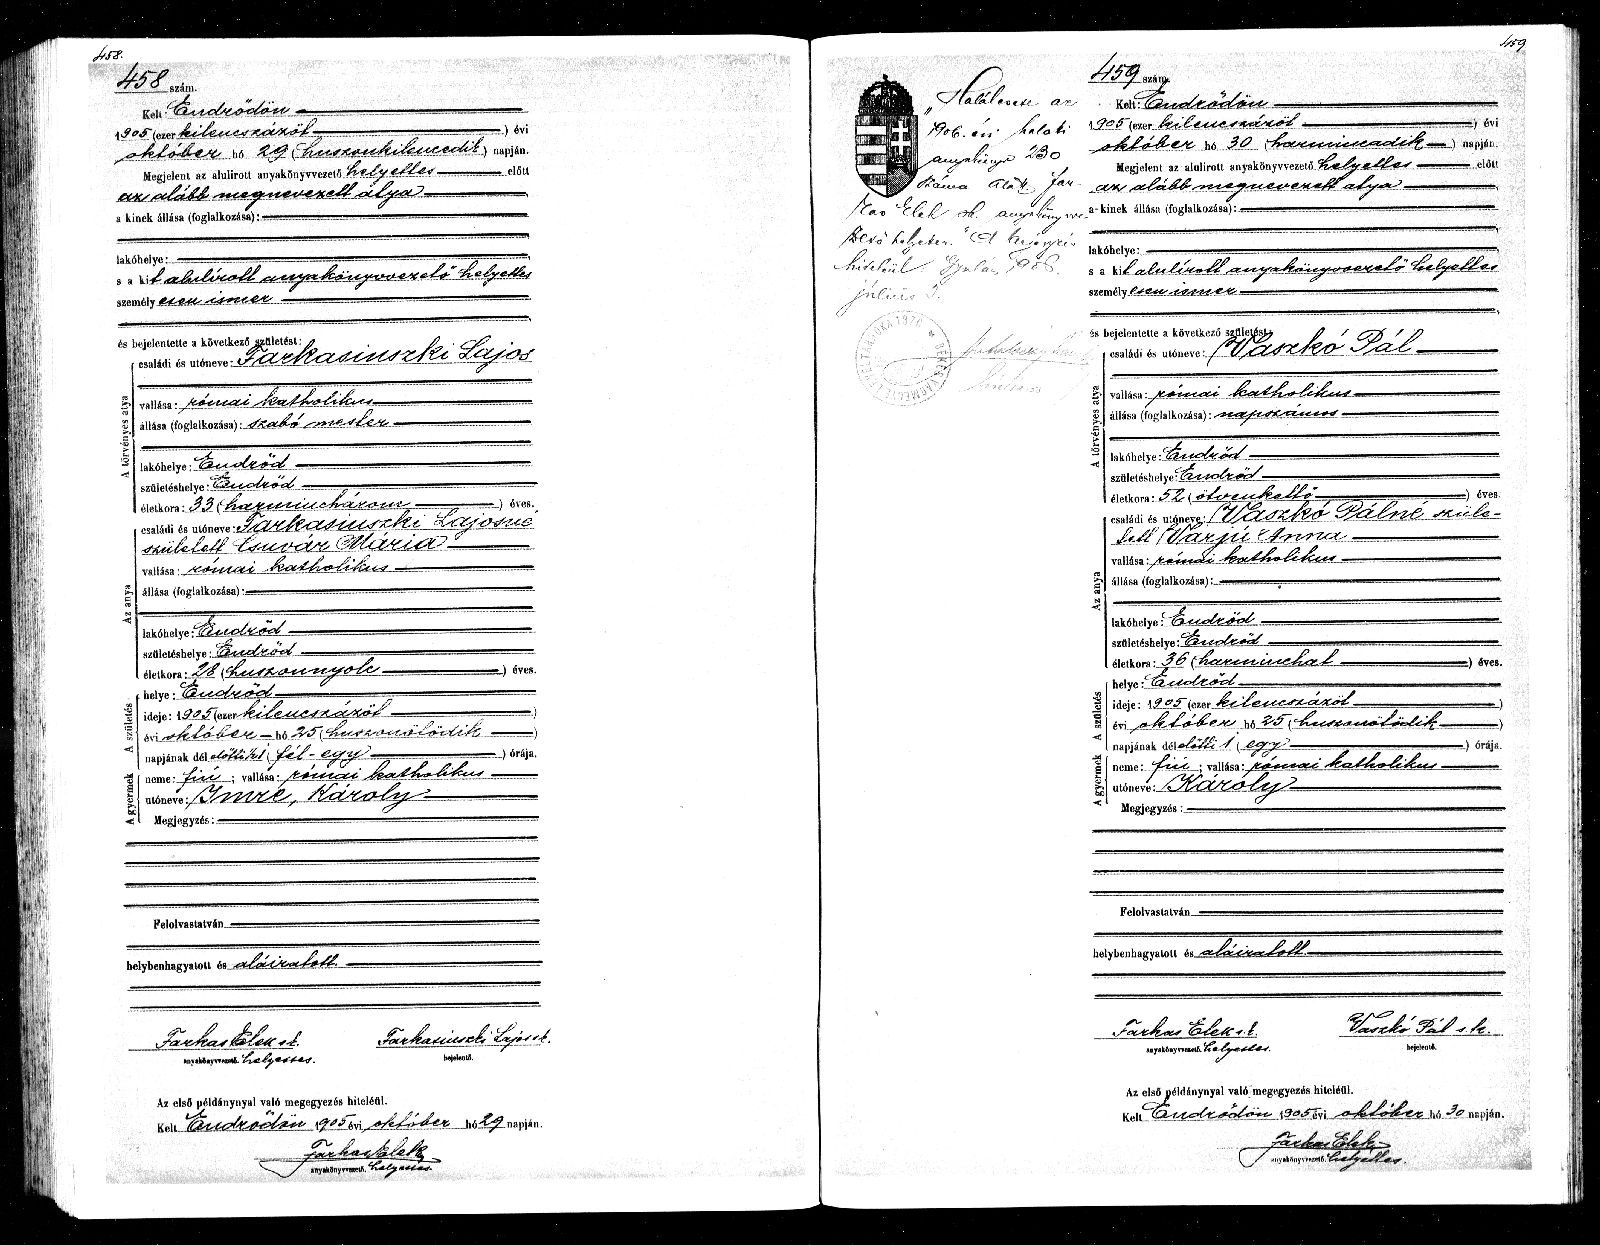 458.
458 szám.
Kelt Endrődön
1905 (ezer kilencszázöt) évi
október hó 29 (huszonkilencedik) napján.
Megjelent az alulirott anyakönyvvezető helyettes előtt
az alább megnevezett atya
a kinek állása (foglalkozása):
lakóhelye:
s a kit alulírott anyakönyvvezető helyettes
személyesen ismer
és bejelentette a következő születést:
A törvényes atya
családi és utóneve: Farkasinszki Lajos
vallása: római katholikus
állása (foglalkozása): szabó mester
lakóhelye: Endrőd
születéshelye: Endrőd
életkora: 33 (harminchárom) éves.
Az anya
családi és utóneve: Farkasinszki Lajosné
született Csuvár Mária
vallása: római katholikus
állása (foglalkozása):
lakóhelye: Endrőd
születéshelye: Endrőd
életkora: 28 (huszonnyolc) éves.
A születés
helye: Endrőd
ideje: 1905 (ezer kilencszázöt)
évi október hó 25 (huszonötödik)
napjának dél előtti ½1 (fél-egy) órája.
A gyermek
neme: fiú; vallása: római katholikus
utóneve: Imre, Károly
Megjegyzés:
Felolvastatván
helybenhagyatott és aláiratott.
Farkas Elek s.k. Farkasinszki Lajos s.k.
anyakönyvvezető. helyettes. bejelentő.
Az első példánynyal való megegyezés hiteléül.
Kelt Endrődön 1905 évi október hó 29 napján.
Farkas Elek
anyakönyvvezető. helyettes.
459
"Haláleset az
1906. évi halotti
anyakönyv 230
száma alatt. Far-
kas Elek sk. anyakönyvve-
zető helyettes."
hiteléül Gyulán, 1906.
július 3.
459 szám.
Kelt: Endrődön
1905 (ezer kilencszázöt) évi
október hó 30 (harmincadik) napján.
Megjelent az alulirott anyakönyvvezető helyettes előtt
az alább megnevezett atya
a kinek állása (foglalkozása):
lakóhelye:
s a kit alulírott anyakönyvvezető helyettes
személyesen ismer
és bejelentette a következő születést:
A törvényes atya
családi és utóneve: Vaszkó Pál
vallása: római katholikus
állása (foglalkozása): napszámos
lakóhelye: Endrőd
születéshelye: Endrőd
életkora: 52 (ötvenkettő) éves.
Az anya
családi és utóneve: Vaszkó Pálné szüle-
tett Varjú Anna
vallása: római katholikus
állása (foglalkozása):
lakóhelye: Endrőd
születéshelye: Endrőd
életkora: 36 (harminchat) éves.
A születés
helye: Endrőd
ideje: 1905 (ezer kilencszázöt)
évi október hó 25 (huszonötödik)
napjának dél előtti 1 (egy) órája.
A gyermek
neme: fiú; vallása: római katholikus
utóneve: Károly
Megjegyzés:
Felolvastatván
helybenhagyatott és aláiratott.
Farkas Elek s.k. Vaszkó Pál s.k.
anyakönyvvezető. helyettes. bejelentő.
Az első példánynyal való megegyezés hiteléül.
Kelt Endrődön 1905 évi október hó 30 napján.
Farkas Elek
anyakönyvvezető. helyettes.